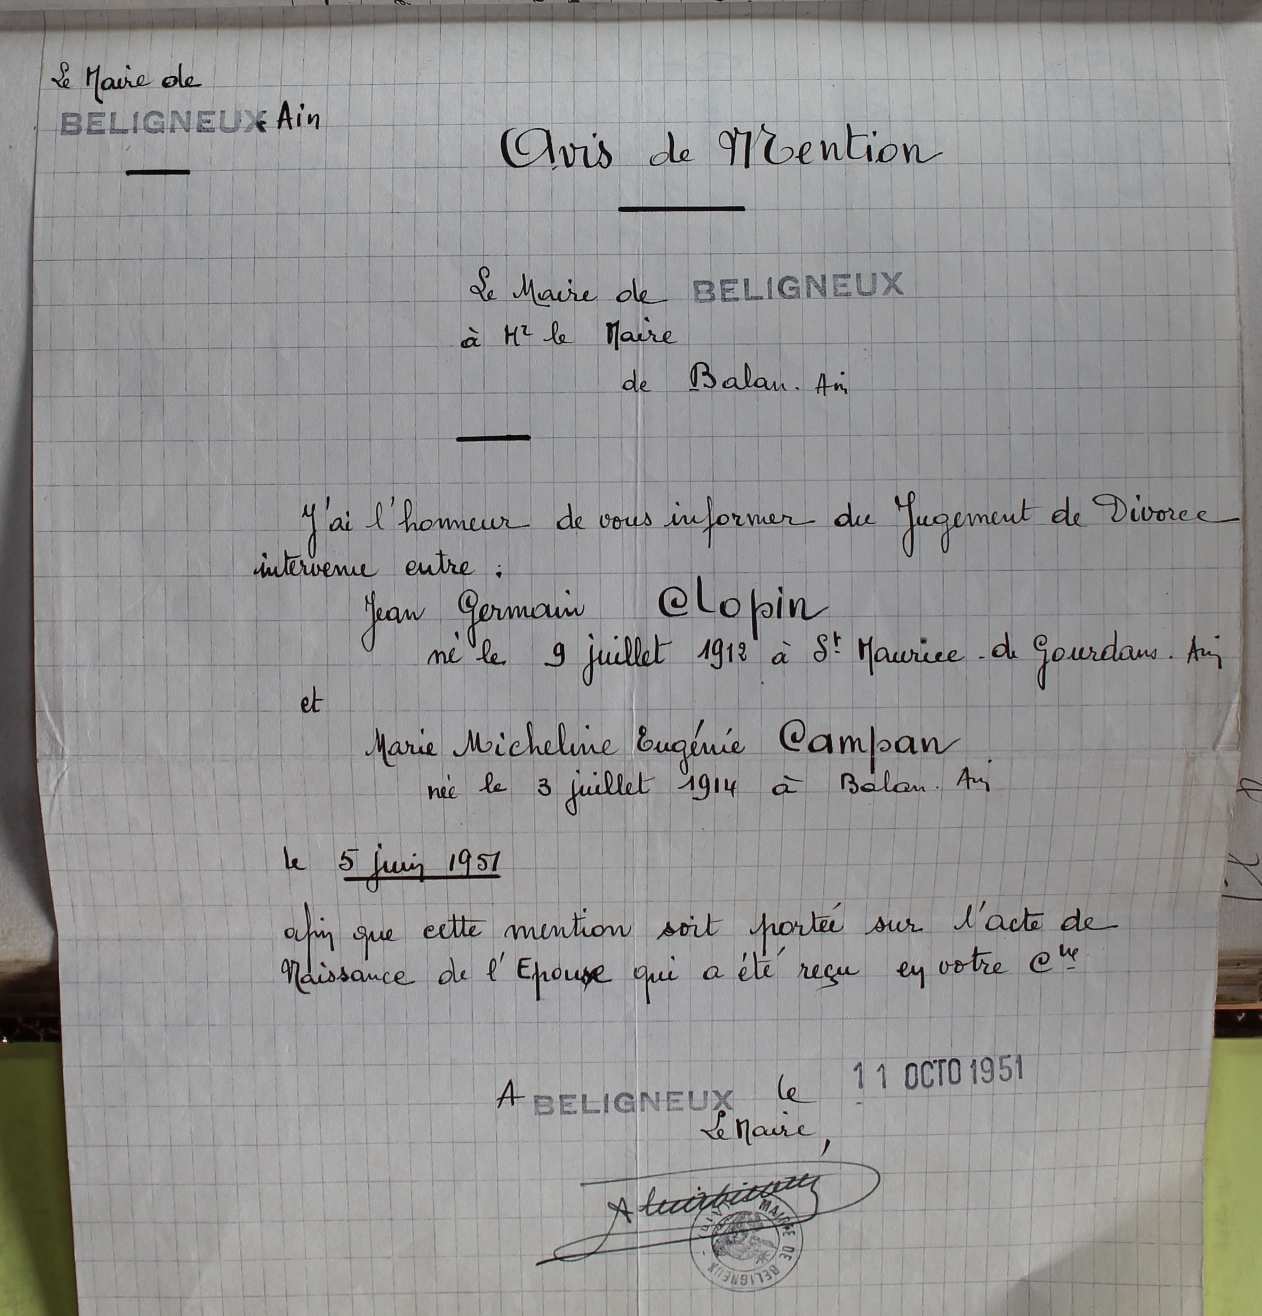 Le Maire de
BELIGNEUX Ain
Avis de Mention
Le Maire de BELIGNEUX
à Mr le Maire
de Balan. Ain
J'ai l'honneur de vous informer du Jugement de Divorce
intervenu entre :
Jean Germain Clopin
né le 9 juillet 1912 à St Maurice de Gourdans. Ain
et
Marie Micheline Eugénie Campan
née le 3 juillet 1914 à Balan. Ain
le 5 juin 1951
afin que cette mention soit portée sur l'acte de
Naissance de l'Epouse qui a été reçu en votre Cne
A BELIGNEUX le 11 OCTO 1951
Le Maire,
MAIRIE DE BELIGNEUX